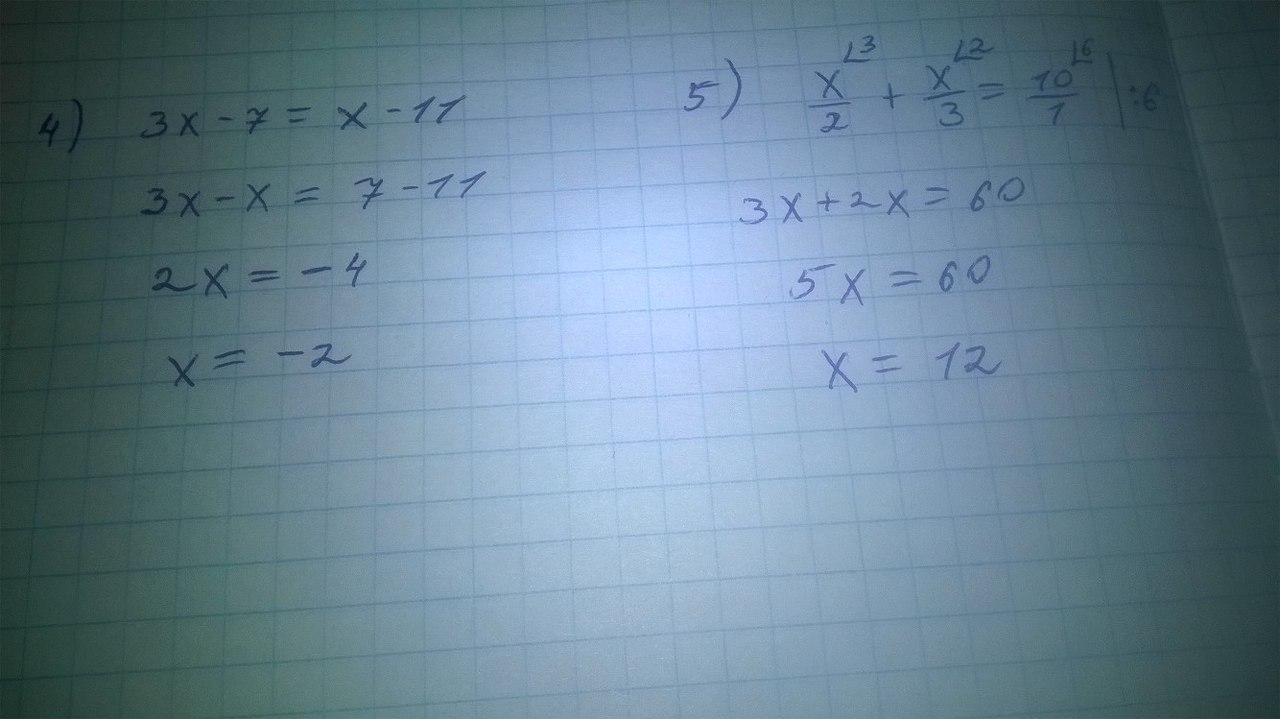 4) 3x - 7 = x - 11
3x - x = 7 - 11
2x = -4
x = -2
5) x/2 ⌊3 + x/3 ⌊2 = 10/1 ⌊6 | :6
3x + 2x = 60
5x = 60
x = 12